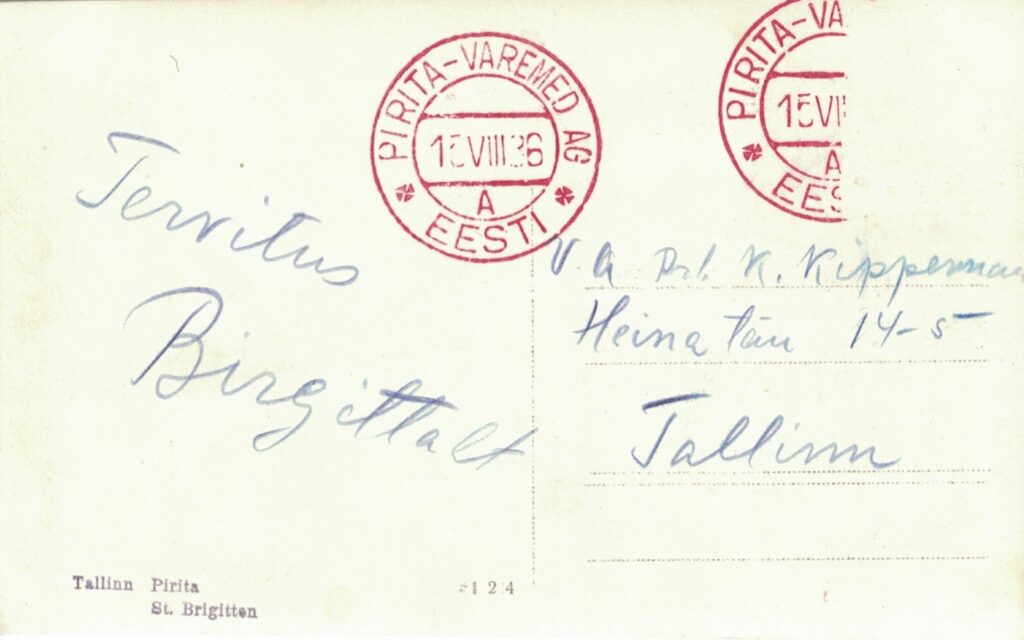 PIRITA-VAREMED AG
15 VIII 36
A
EESTI
PIRITA-VA
15 VI
A
EES
Tervitus
Birgittalt
V. A. Prl. K. Kipperman
Heina tän 14-5
Tallinn
Tallinn Pirita
St. Brigitten
124